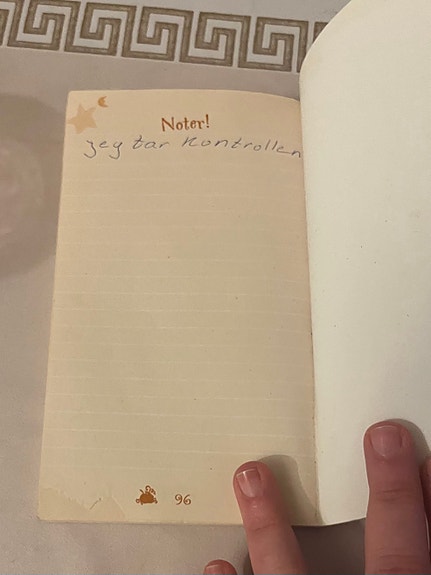 Noter!
jeg tar kontrollen
96